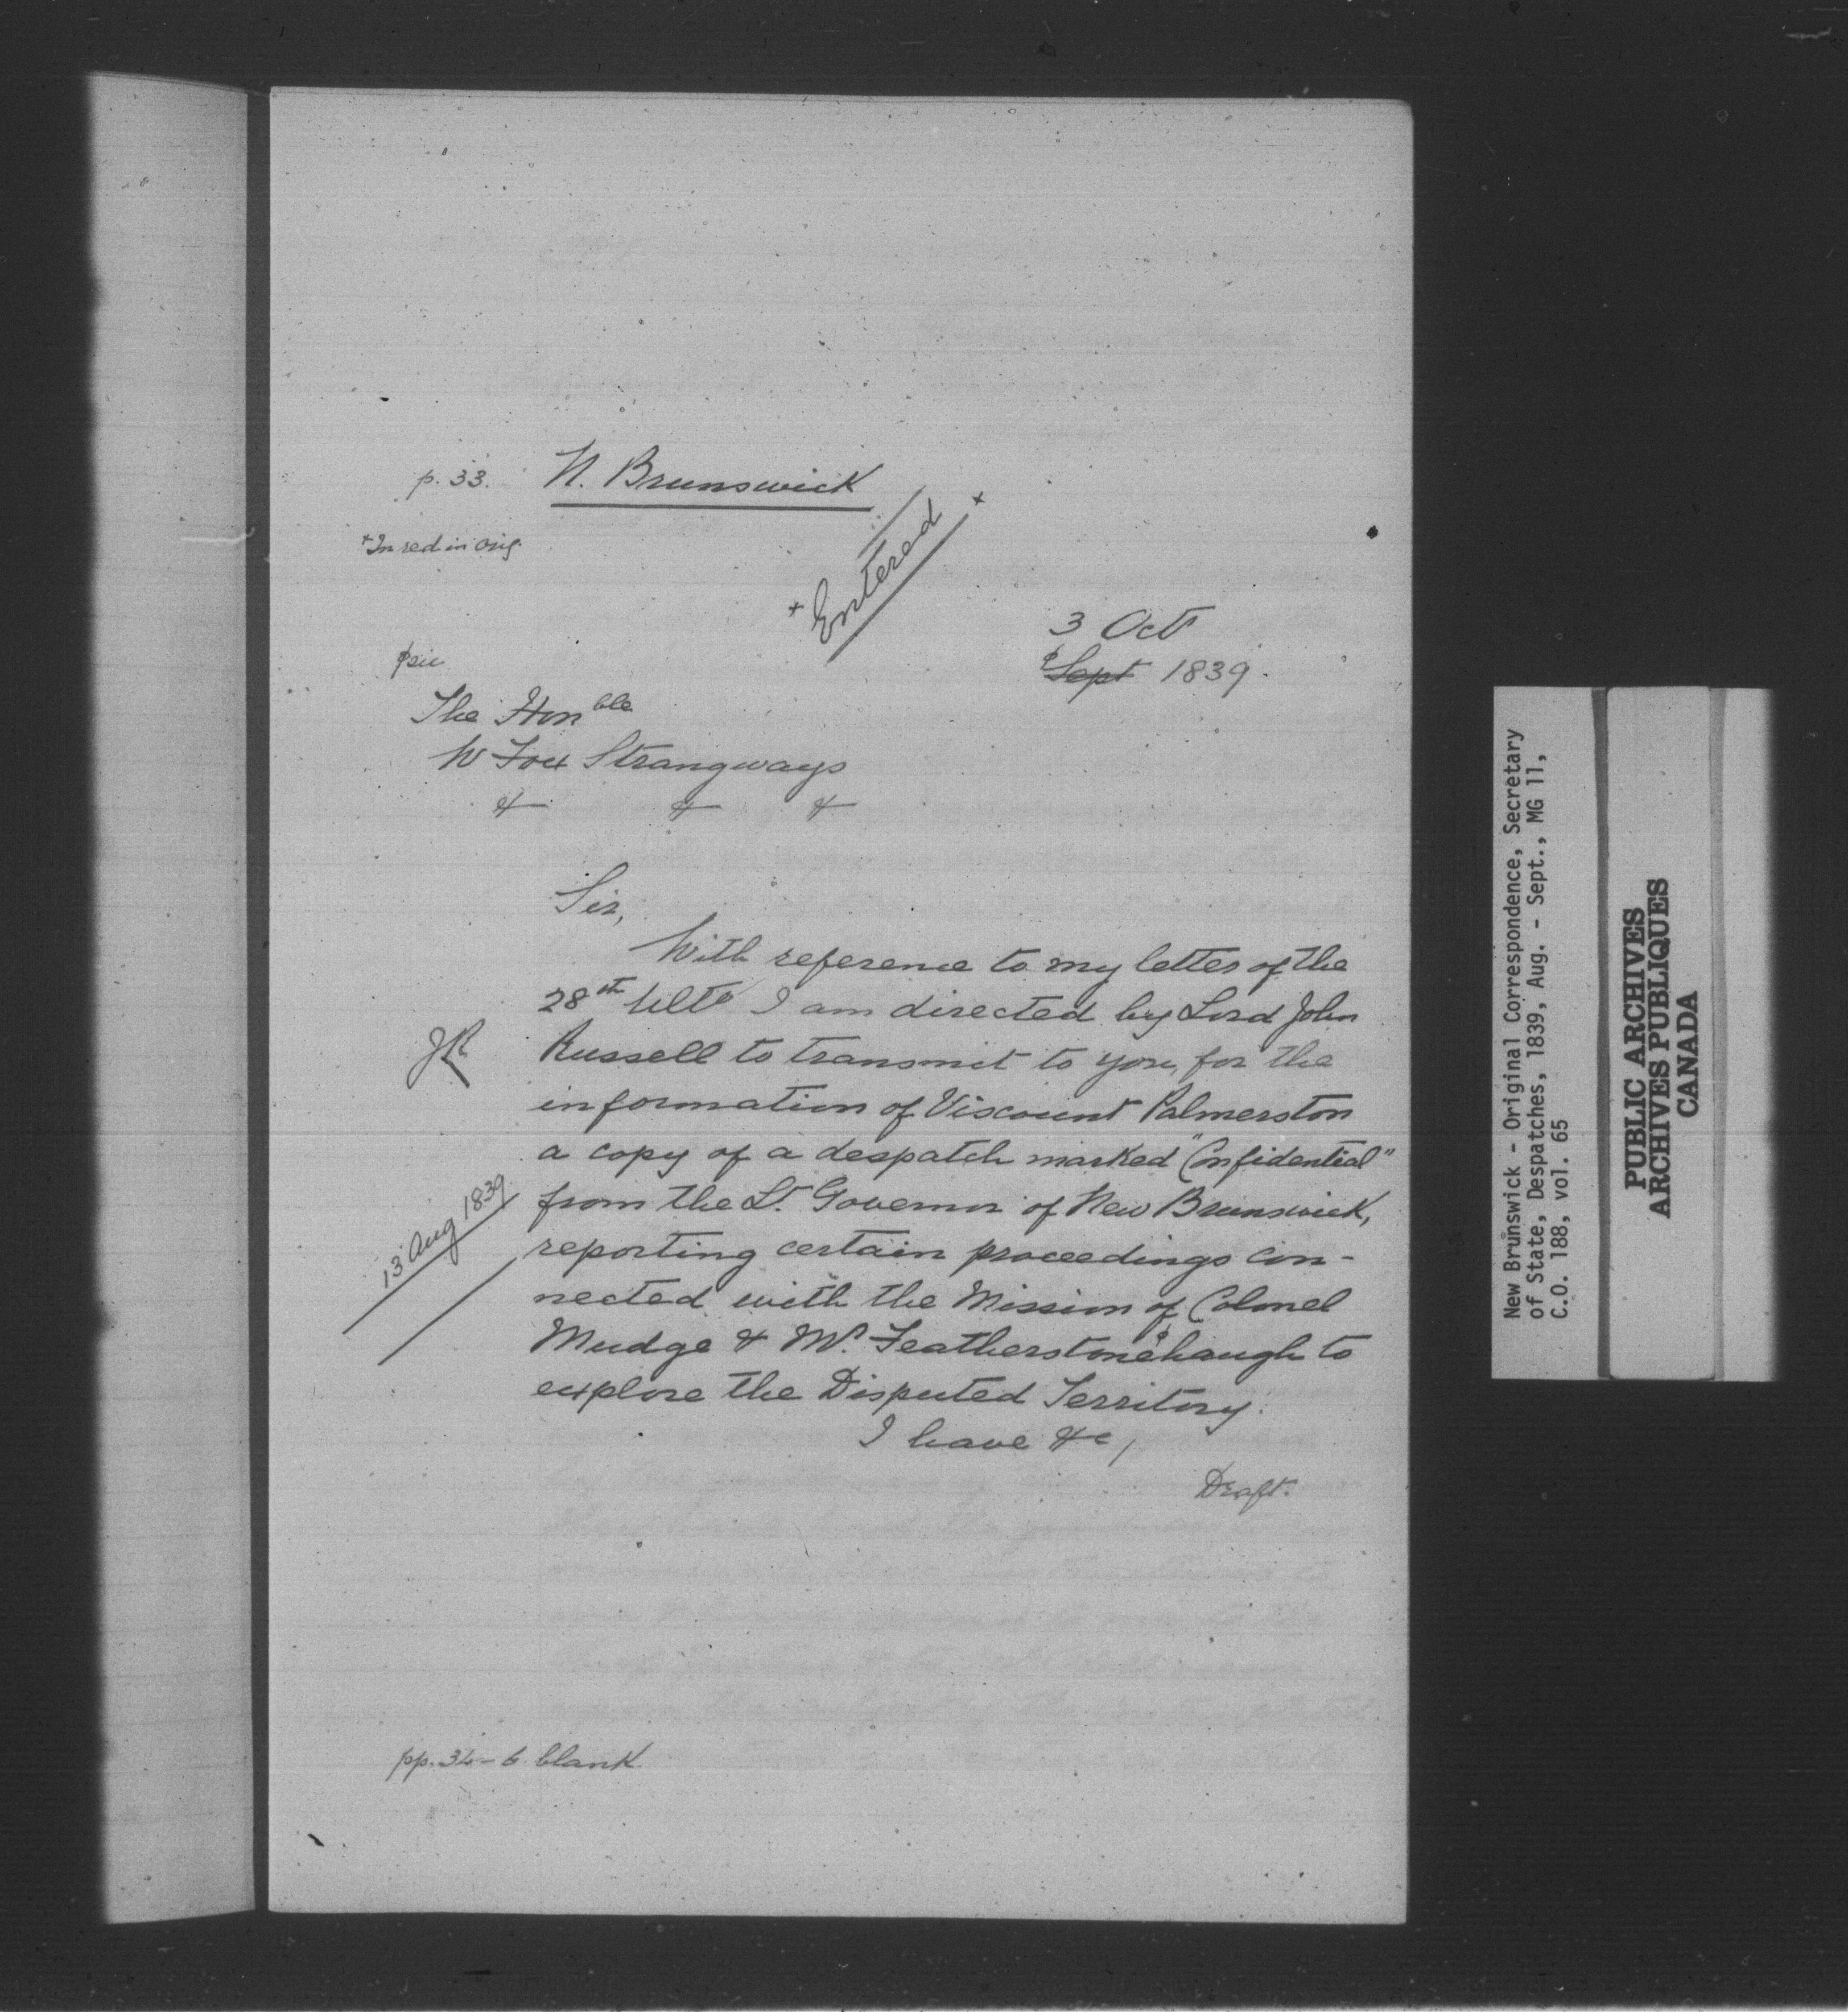 p. 33. N. Brunswick
+In red in orig.
+ Entered +
3 Oct
ϕSept 1839.
ϕsic
The Honble
W Fox Strangways
& & &
Sir,
With reference to my letter of the
28th Ulto I am directed by Lord John
JR
Russell to transmit to you, for the
information of Viscount Palmerston
a copy of a despatch marked "Confidential"
13 Aug 1839
from the Lt. Governor of New Brunswick,
reporting certain proceedings con-
nected with the Mission of Colonel
Mudge & Mr. Featherstonϕehaugh to
explore the Disputed Territory.
I have &c,
Draft.
pp. 34-6 blank.
New Brunswick - Original Correspondence, Secretary
of State, Despatches, 1839, Aug. - Sept., MG 11,
C.O. 188, vol. 65
PUBLIC ARCHIVES
ARCHIVES PUBLIQUES
CANADA